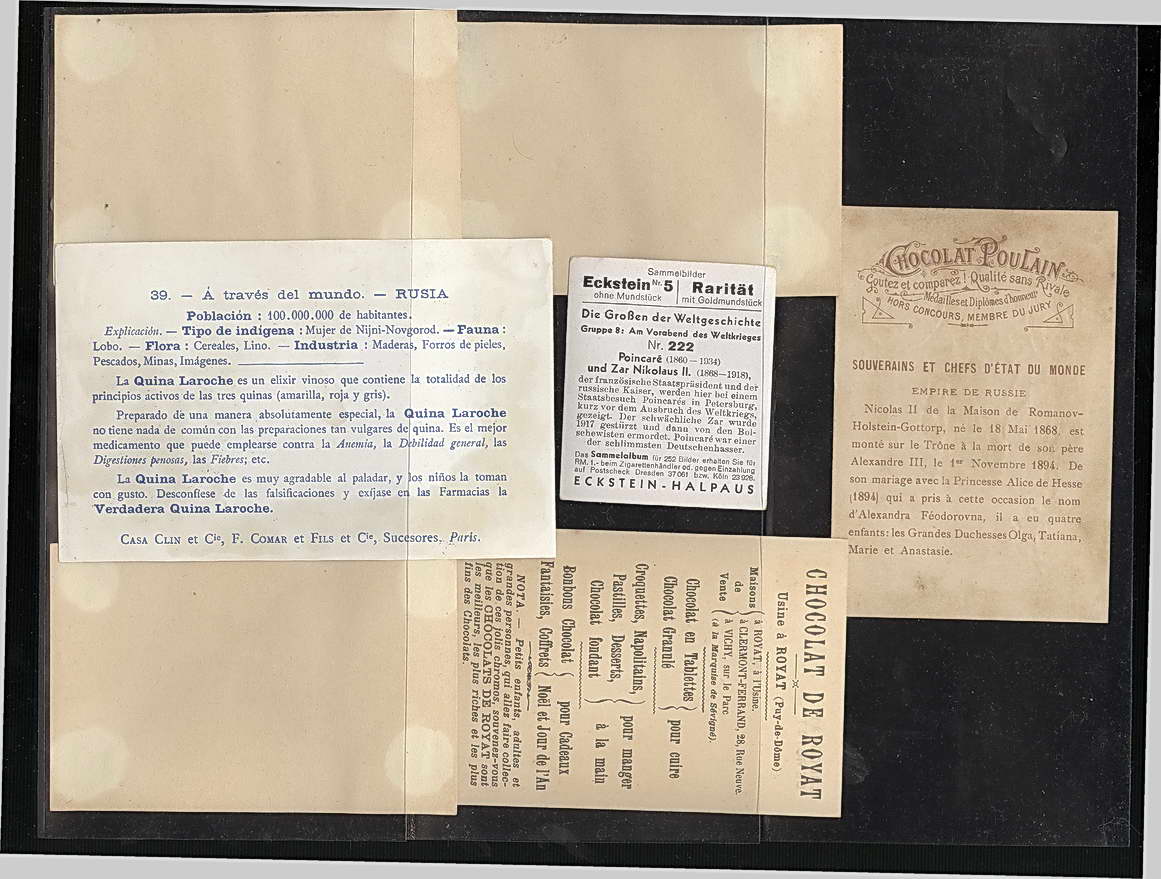 39. — Á través del mundo. — RUSIA
Población : 100.000.000 de habitantes.
Explicación. — Tipo de indígena : Mujer de Nijni-Novgorod. — Fauna :
Lobo. — Flora : Cereales, Lino. — Industria : Maderas, Forros de pieles,
Pescados, Minas, Imágenes.
La Quina Laroche es un elixir vinoso que contiene la totalidad de los
principios activos de las tres quinas (amarilla, roja y gris).
Preparado de una manera absolutamente especial, la Quina Laroche
no tiene nada de común con las preparaciones tan vulgares de quina. Es el mejor
medicamento que puede emplearse contra la Anemia, la Debilidad general, las
Digestiones penosas, las Fiebres; etc.
La Quina Laroche es muy agradable al paladar, y los niños la toman
con gusto. Desconfiese de las falsificaciones y exíjase en las Farmacias la
Verdadera Quina Laroche.
CASA CLIN et Cie, F. COMAR et FILS et Cie, Sucesores. Paris.
Sammelbilder
Eckstein Nr. 5 Rarität
ohne Mundstück mit Goldmundstück
Die Großen der Weltgeschichte
Gruppe 8: Am Vorabend des Weltkrieges
Nr. 222
Poincaré (1860 – 1934)
und Zar Nikolaus II. (1868–1918),
der französische Staatspräsident und der
russische Kaiser, werden hier bei einem
Staatsbesuch Poincarés in Petersburg,
kurz vor dem Ausbruch des Weltkrieges,
gezeigt. Der schwächliche Zar wurde
1917 gestürzt und dann von den Bol-
schewisten ermordet. Poincaré war einer
der schlimmsten Deutschenhasser.
Das Sammelalbum für 252 Bilder erhalten Sie für
RM. 1.- beim Zigarettenhändler od. gegen Einzahlung
auf Postscheck Dresden 37061 bzw. Köln 23928.
ECKSTEIN-HALPAUS
CHOCOLAT POULAIN
Goutez et comparez ! Qualité sans Rivale
Médailles et Diplômes d'honneur
HORS CONCOURS, MEMBRE DU JURY
SOUVERAINS ET CHEFS D'ÉTAT DU MONDE
EMPIRE DE RUSSIE
Nicolas II de la Maison de Romanov-
Holstein-Gottorp, né le 18 Mai 1868, est
monté sur le Trône à la mort de son père
Alexandre III, le 1er Novembre 1894. De
son mariage avec la Princesse Alice de Hesse
(1894) qui a pris à cette occasion le nom
d'Alexandra Féodorovna, il a eu quatre
enfants: les Grandes Duchesses Olga, Tatiana,
Marie et Anastasie.
CHOCOLAT DE ROYAT
Usine à ROYAT (Puy-de-Dôme)
Maisons de Vente
à ROYAT, à l'Usine.
à CLERMONT-FERRAND, 28, Rue Neuve.
à VICHY, sur le Parc
(à la Marquise de Sévigné).
Chocolat en Tablettes
Chocolat Granulé
pour cuire
Croquettes, Napolitains,
Pastilles, Desserts,
pour manger
Chocolat fondant
à la main
Bonbons Chocolat
pour Cadeaux
Fantaisies, Coffrets
Noël et Jour de l'An
NOTA. — Petits enfants, adultes et
grandes personnes, qui allez faire collec-
tion de ces jolis chromos, souvenez-vous
que les CHOCOLATS DE ROYAT sont
les meilleurs, les plus riches et les plus
fins des Chocolats.